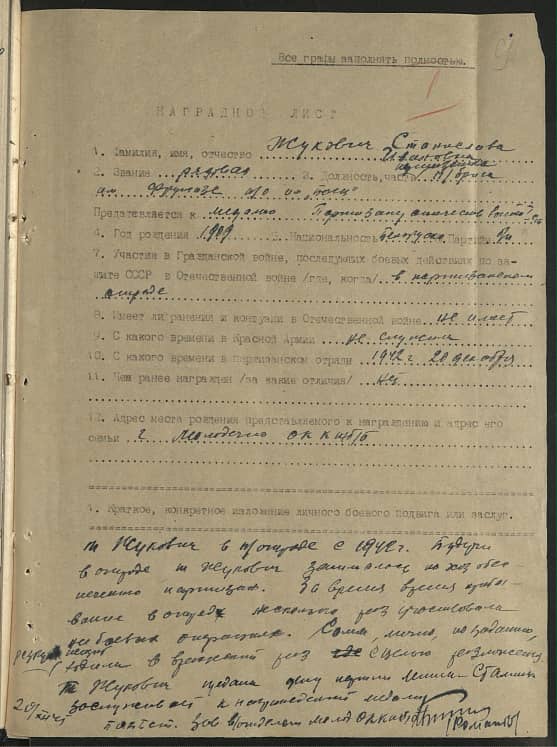 Все графы заполнять полностью.
НАГРАДНОЙ ЛИСТ
1. Фамилия, имя, отчество Жукович Станислава
Ивановна
2. Звание рядовая 3. Должность, часть
им Фрунзе п/о им
Представляется к медалью Партизану отечествен войны 2 ст
4. Год рождения 1909 5. Национальность белоруска Партийн
7. Участие в Гражданской войне, последующих боевых действиях по за-
щите СССР в Отечественной войне /где, когда/ в партизанском
отряде
8. Имеет ли ранения и контузии в Отечественной войне не имеет
9. С какого времени в Красной Армии не служила
10. С какого времени в партизанском отряде 1942 г 20 декабря
11. Чем ранее награжден /за какие отличия/ нет
12. Адрес места рождения представляемого к награждению и адрес его
семьи г. Молодечно ок к
1. Краткое, конкретное изложение личного боевого подвига или заслуг.
т Жукович в п/отряде с 1942 г. Будучи
в отряде т Жукович занималась по хоз обес
печению партизан. За время время пребы-
вание в отряде несколько раз участвовала
на боевых операциях. Сама, лично, по заданию,
ходила в вражеский с целью
т Жукович предана делу партии Ленина Сталина
заслуживает к награждению медали
партиз.